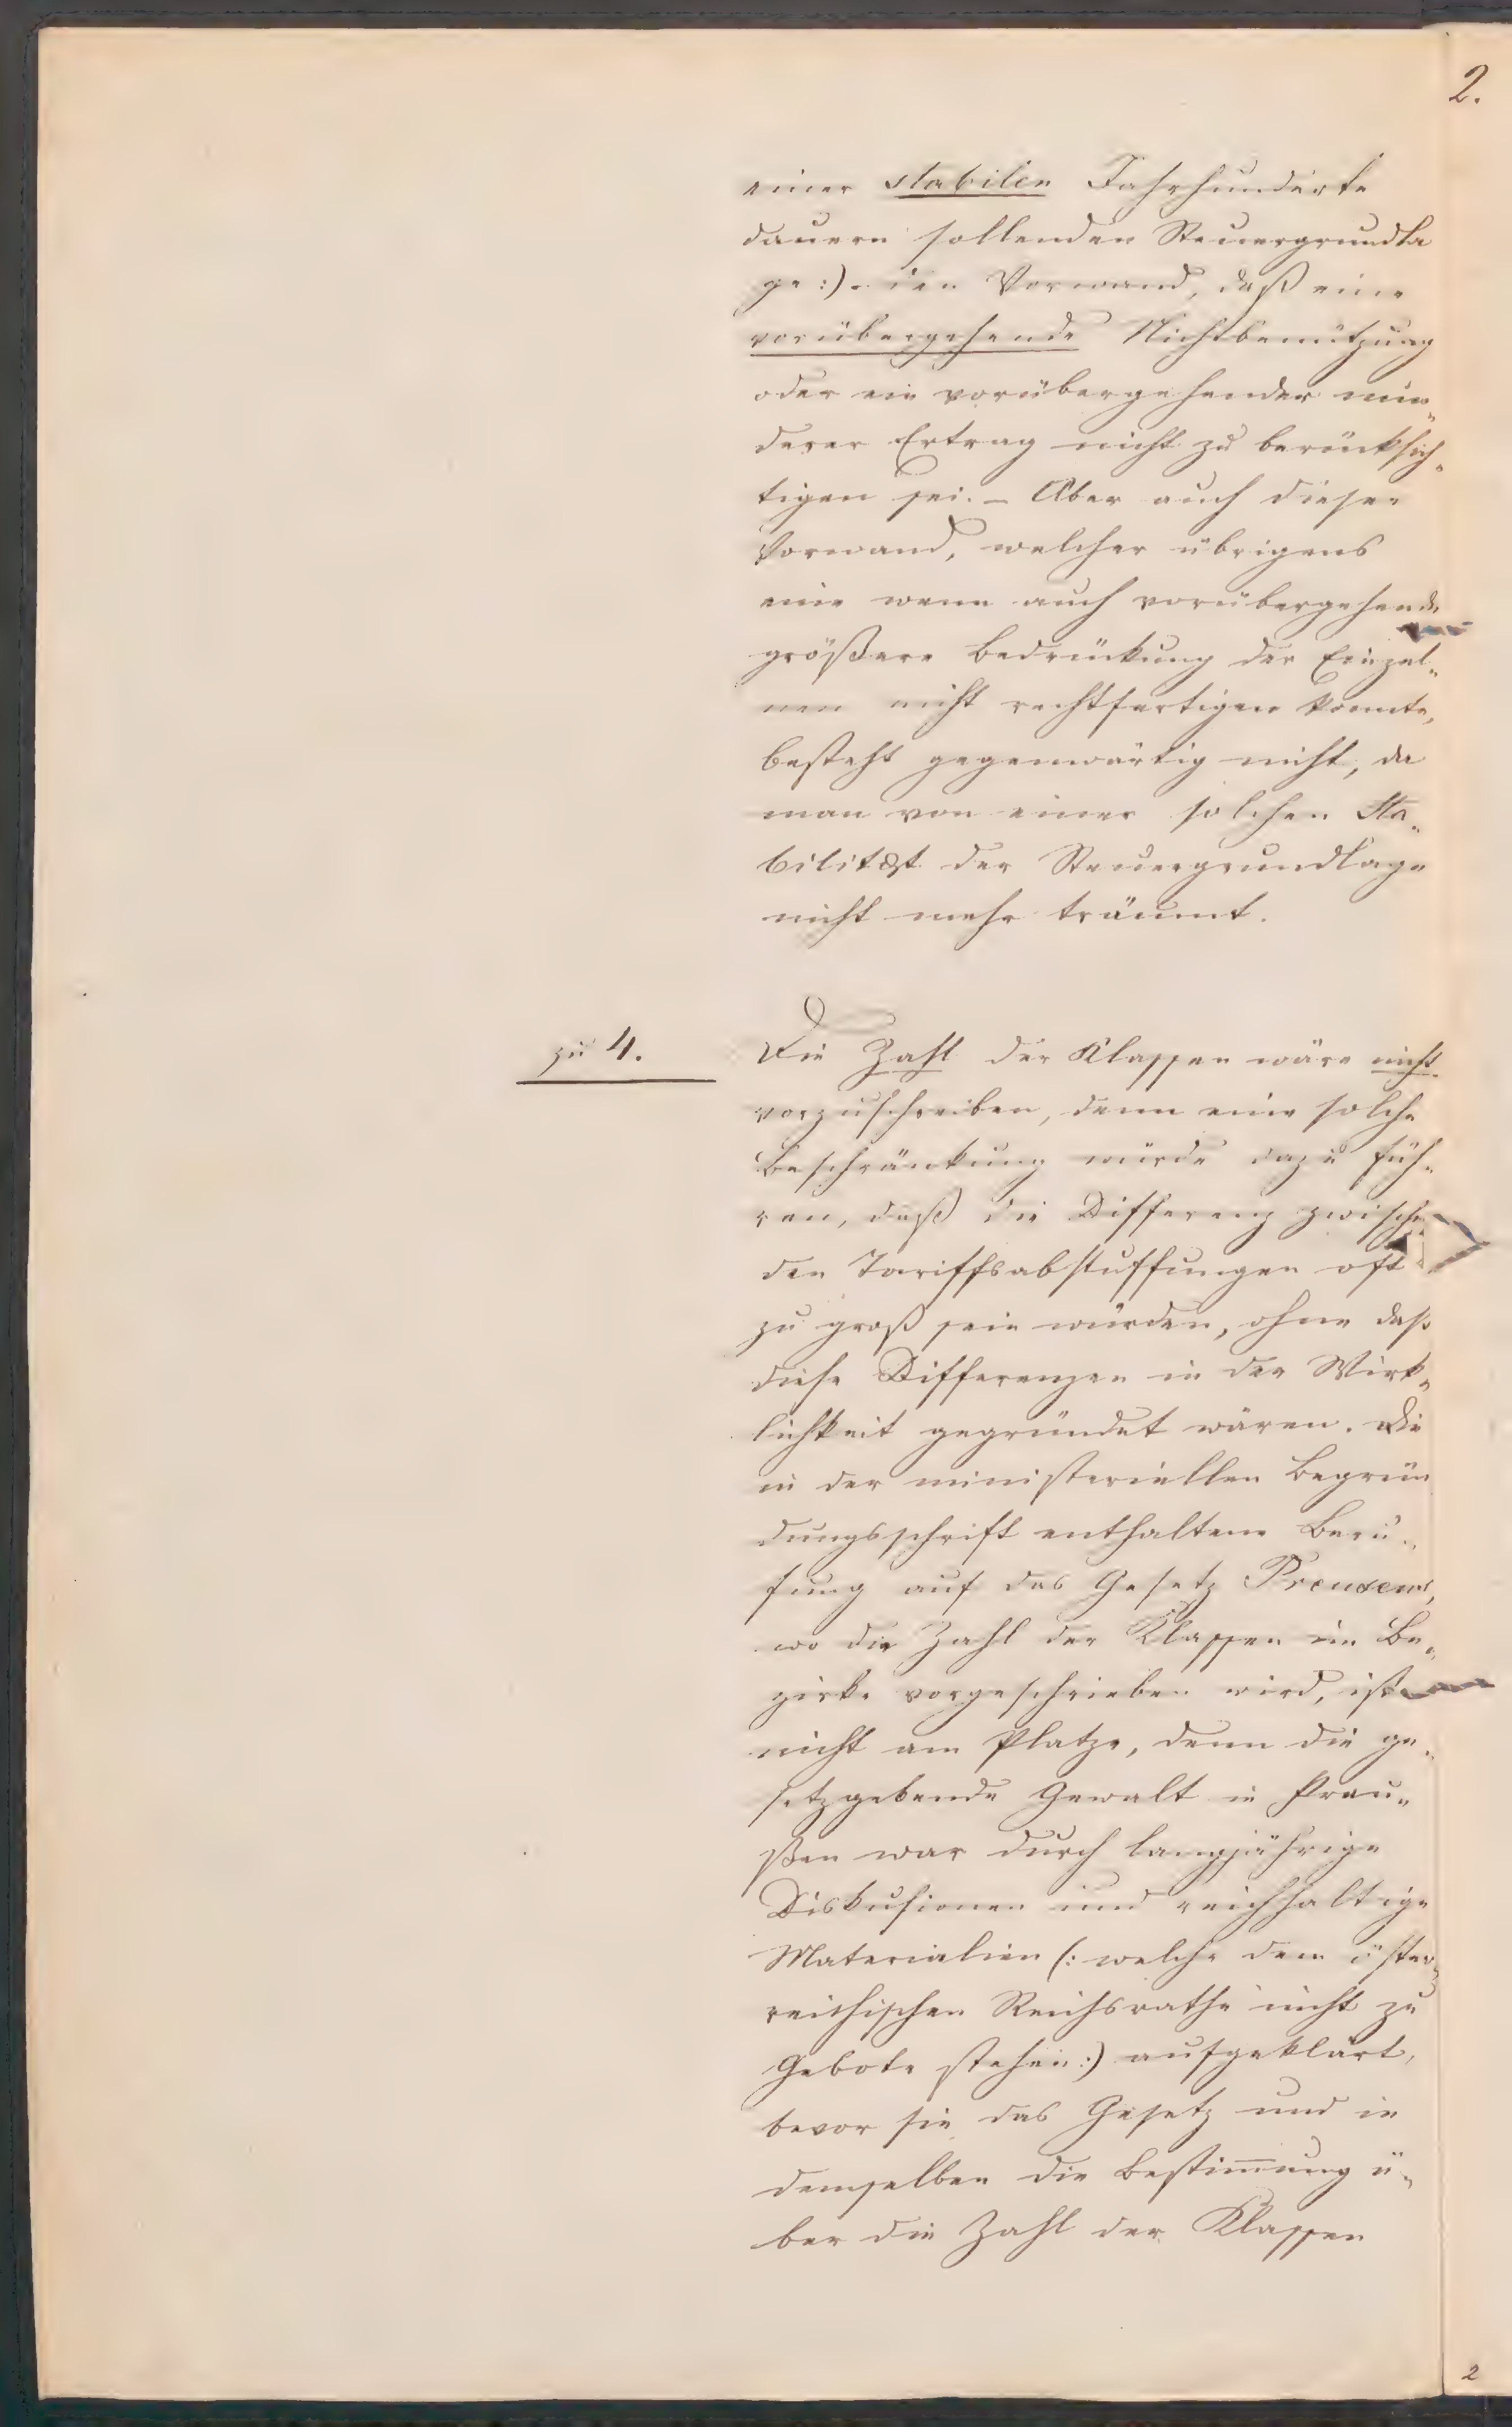 2.
einer stabilen Jahrhunderte
dauern sollenden Steuergrundla
ge :) – den Vorwand, daß eine
vorübergehende Nichtbenützung
oder ein vorübergehender min„
derer Ertrag nicht zu berücksich„
tigen sei. – Aber auch dieser
Vorwand, welcher übrigens
eine wenn auch vorübergehende
größere Bedrückung der Einzel„
nen nicht rechtfertigen konnte,
besteht gegenwärtig nicht, da
man von einer solchen Sta„
bilität der Steuergrundlage
nicht mehr träumt.
zu 4.
Die Zahl der Klassen wäre nicht
vorzuschreiben, denn eine solche
Beschränkung würde dazu füh„
ren, daß die Differenz zwischen
den Tariffsabstuffungen oft
zu groß sein würden, ohne daß
diese Differenzen in der Wirk„
lichkeit gegründet wären. Die
in der ministeriellen Begrün
dungsschrift enthaltene Beru„
fung auf das Gesetz Preusens,
wo die Zahl der Klassen im Be„
zirke vorgeschrieben wird, ist
nicht am Platze, denn die ge„
setzgebende Gewalt in Preu„
ßen war durch langjährige
Diskusionen und reichhaltige
Materialien (: welche dem öster„
reichischen Reichsrathe nicht zu
Gebote stehen :) aufgeklärt,
bevor sie das Gesetz und in
demselben die Bestim̅ung ü„
ber die Zahl der Klassen
2